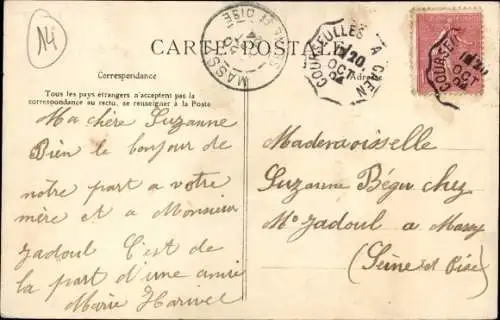 14
CARTE POSTALE
Correspondance
Adresse
Tous les pays étrangers n'acceptent pas la
correspondance au recto, se renseigner à la Poste
MASSY SEINE ET OISE
COURSEULLES A CAEN
1E/20
OCT
04
COURSEU
1E/20
OCT
04
Ma chère Suzanne
Bien le bonjour de
notre part a votre
mère et a Monsieur
Jadoul C'est de
la part d'une amie
Marie Harivel
Mademoiselle
Suzanne Bégu chez
Mr Jadoul a Massy
(Seine et Oise)